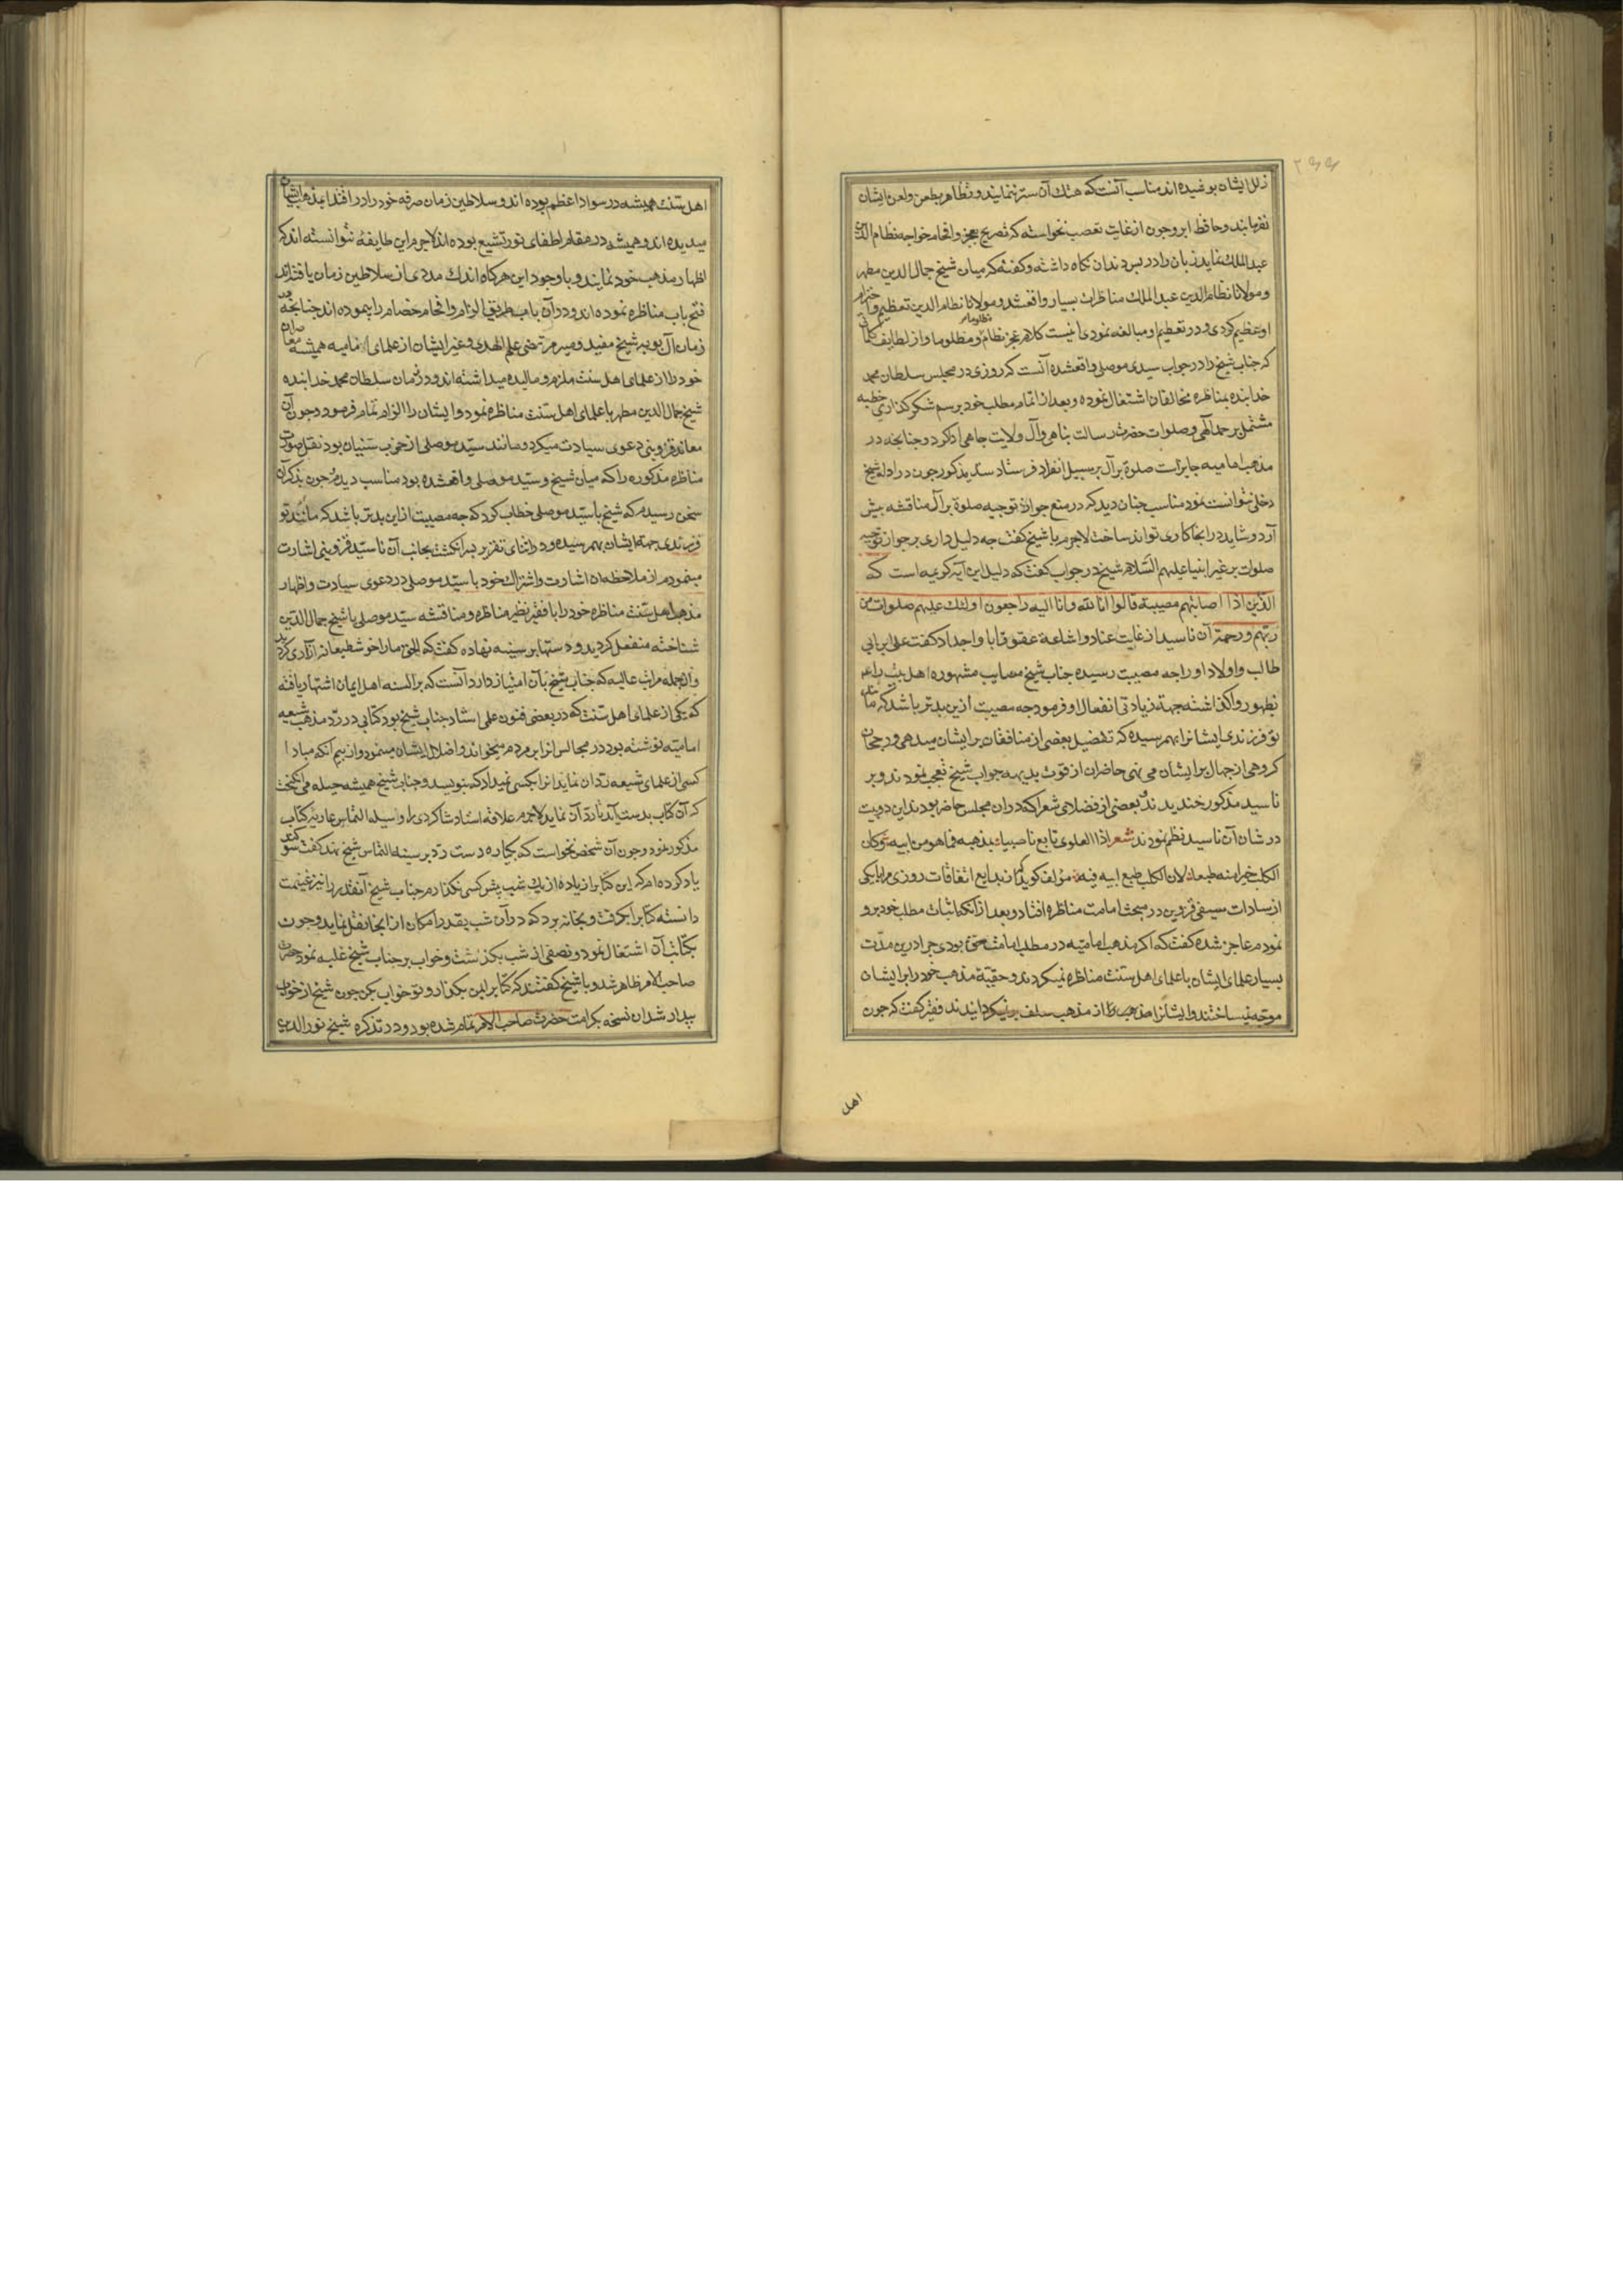 ۲۶۶
زلل ایشان پوشیده اند مناسب آنست که هتك آن ستر ننمایند و تظاهر بطعن و لعن ایشان
نفرمایند و حافظ ابرو چون از غایت تعصب نخواسته که تصریح بعجز و افحام خواجه نظام الدین
عبد الملك نماید زبان را در پس دندان نکاه داشته و کفته که میان شیخ جمال الدین مطهر
و مولانا نظام الدین عبد الملك مناظرات بسیار واقعشد و مولانا نظام الدین تعظیم و احترام
او عظیم کردی و در تعظیم او مبالغه نمودی انیست کلام عجز نظام و مظلوما و از لطایف کلمات
که جناب شیخ را در جواب سیدی موصلی واقعشده آنست که روزی در مجلس سلطان محمد
خدابنده بمناظره مخالفان اشتغال نموده و بعد از اتمام مطلب خود برسم شکرکذاری خطبه
مشتمل بر حمد الهی و صلوات حضرت رسالت پناهی و آل ولایت جاهی ادا کرد و چنانچه در
مذهب امامیه جایز است صلوة بر آل بر سبیل انفراد فرستاد سید مذکور چون در ادله شیخ
دخلی نتوانست نمود مناسب چنان دید که در منع جواز توجیه صلوة بر آل مناقشه پیش
آرد و شاید در انجا کاری تواند ساخت لاجرم با شیخ کفت چه دلیل داری بر جواز توجیه
صلوات بر غیر انبیا علیهم السلام شیخ در جواب کفت که دلیل این آیه کریمه است که
الذین اذا اصابتهم مصیبة قالوا انا لله و انا الیه راجعون اولئك علیهم صلوات من
ربهم و رحمة آن ناسید از غایت عناد و اشاعة عقوق ابا و اجداد کفت علی بن ابی
طالب و اولاد او را چه مصیبت رسیده جناب شیخ مصایب مشهوره اهل بیت را
بظهور واکذاشته جهة زیادتی انفعال او فرمود چه مصیبت ازین بدتر باشد که مثل
تو فرزندی ایشانرا بهم رسیده که تفضیل بعضی از منافقان بر ایشان میدهی و رجحان
کروهی از جهال بر ایشان می نهی حاضران از قوت بدیهه جواب شیخ تعجب نمودند و بر
ناسید مذکور خندیدند و بعضی از فضلای شعرا که در ان مجلس حاضر بودند این دو بیت
در شان آن ناسید نظم نمودند شعر اذا العلوی تابع ناصبیا بمذهبه فما هو من ابیه و کان
الکلب خیرا منه طبعا لان الکلب طبع ابیه فیه مؤلف کوید که از بدایع اتفاقات روزی مرا با یکی
از سادات سیفی قزوین در مبحث امامت مناظره افتاد و بعد از آنکه اثبات مطلب خود برو
نمودم عاجز شده کفت که اکر مذهب امامیه در مطلب امامت حق بودی چرا درین مدت
بسیار علمای ایشان با علمای اهل سنت مناظره نمیکردند و حقیة مذهب خود را بر ایشان
موجه نمیساختند و ایشانرا از مذهب سلف بر نمیکردانیدند فقیر کفت که چون
اهل
اهل سنت همیشه در سواد اعظم بوده اند و سلاطین زمان صرفه خود را در اقتدا بمذهب ایشان
میدیده اند و همیشه در مقام اطفای نور تشیع بوده اند لاجرم این طایفه نتوانسته اند که
اظهار مذهب خود نمایند و با وجود این هرکاه اندك مددی از سلاطین زمان یافته اند
فتح باب مناظره نموده اند و در آن باب طریق الزام و افحام خصام را پیموده اند چنانچه در
زمان آل بویه شیخ مفید و میر مرتضی علم الهدی و غیر ایشان از علمای امامیه همیشه معاصران
خود را از علمای اهل سنت ملزم و مالیده میداشته اند و در زمان سلطان محمد خدابنده
شیخ جمال الدین مطهر با علمای اهل سنت مناظره نمود و ایشان را الزام تمام فرمود و چون آن
معاند قزوینی دعوی سیادت میکرد و مانند سید موصلی از حزب سنیان بود نقل صورت
مناظره مذکوره را که میان شیخ و سید موصلی واقعشده بود مناسب دیدم و چون بذکر آن
سخن رسیدم که شیخ با سید موصلی خطاب کرد که چه مصیبت از این بدتر باشد که مانند تو
فرزندی جهة ایشان بهم رسیده و در اثنای تقریر بسر انکشت بجانب آن ناسید قزوینی اشارت
مینمودم از ملاحظه ان اشارت و اشتراك خود با سید موصلی در دعوی سیادت و اظهار
مذهب اهل سنت مناظره خود را با فقیر نظیر مناظره و مناقشه سید موصلی با شیخ جمال الدین
شناخته منفعل کردید و دستها بر سینه نهاده کفت که الحق ما را خوش طبعانه ازاری کردید
و از جمله مراتب عالیه که جناب شیخ بآن امتیاز دارد آنست که بر السنه اهل ایمان اشتهار یافته
که یکی از علمای اهل سنت که در بعضی فنون علمی استاد جناب شیخ بود کتابی در رد مذهب شیعه
امامیه نوشته بود در مجالس انرا بر مردم میخواند و اضلال ایشان مینمود و از بیم آنکه مبادا
کسی از علمای شیعه رد ان نماید انرا بکسی نمیداد که بنویسد و جناب شیخ همیشه حیله می انکیخت
که آن کتاب بدست آید تا رد آن نماید لاجرم علاقه استاد شاکردی را وسیله التماس عاریه کتاب
مذکور نمود و چون آن شخص نخواست که یکباره دست رد بر سینه التماس شیخ نهد کفت سوکند
یاد کرده ام که این کتابرا زیاده از یك شب پیش کسی نکذارم جناب شیخ آنقدر را نیز غنیمت
دانسته کتابرا بکرفت و بخانه برد که در آن شب بقدر امکان از انجا نقل نماید و چون
بکتابت آن اشتغال نمود و نصفی از شب بکذشت و خواب بر جناب شیخ غلبه نمود حضرت
صاحب الامر ظاهر شد و با شیخ کفتند که کتابرا بمن بکذار و تو خواب کن چون شیخ از خواب
بیدار شد ان نسخه بکرامت حضرت صاحب الامر تمام شده بود و در تذکره شیخ نور الدین